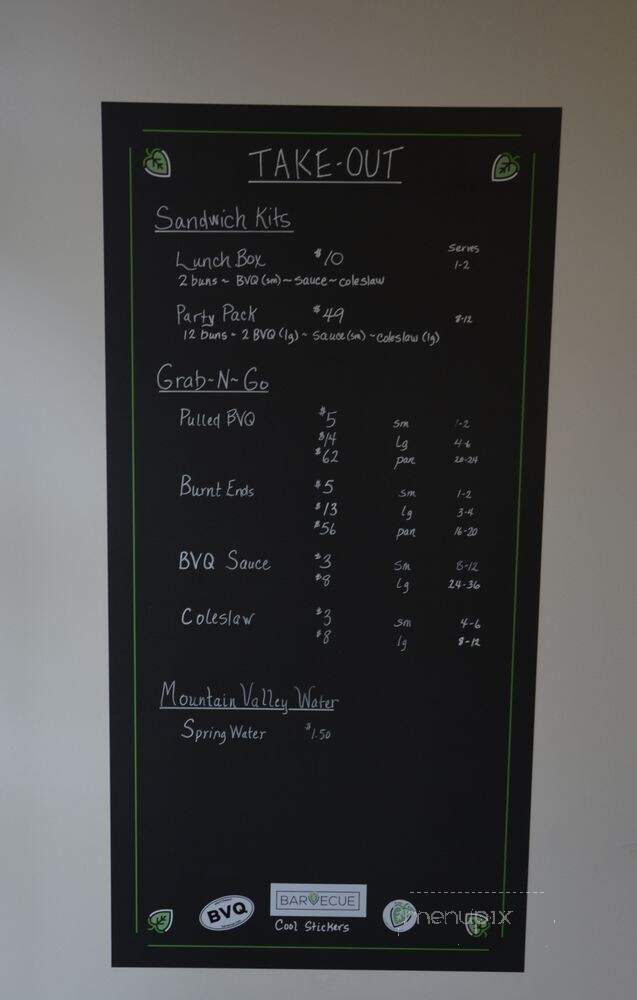 TAKE-OUT
Sandwich Kits
Serves
Lunch Box $10 1-2
2 buns ~ BVQ (sm) ~ sauce ~ coleslaw
Party Pack $49 8-12
12 buns ~ 2 BVQ (lg) ~ sauce (sm) ~ coleslaw (lg)
Grab-N-Go
Pulled BVQ $5 sm 1-2
$14 Lg 4-6
$62 pan 20-24
Burnt Ends $5 sm 1-2
$13 lg 3-4
$56 pan 16-20
BVQ Sauce $3 sm 8-12
$8 Lg 24-36
Coleslaw $3 sm 4-6
$8 lg 8-12
Mountain Valley Water
Spring Water $1.50
BVQ
BARVECUE
Cool Stickers
menupix